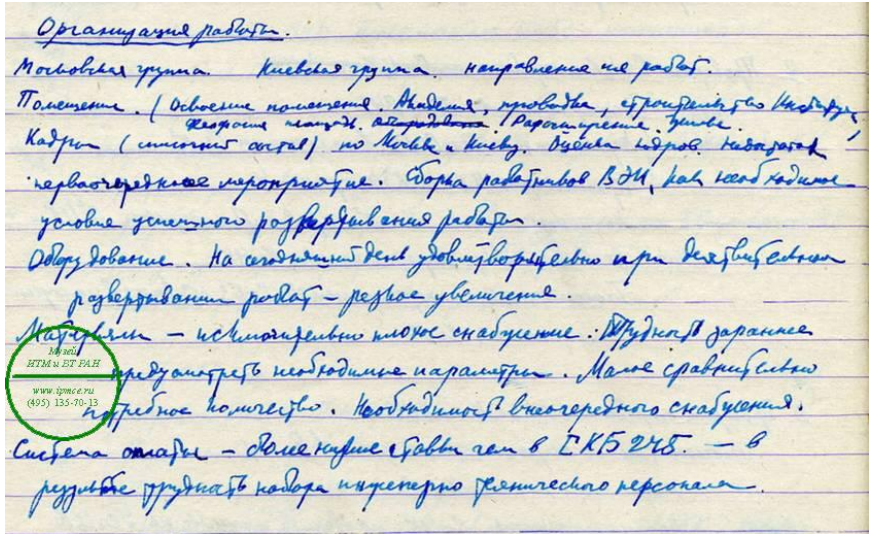 Организация работы.
Московская группа. Киевская группа. направление их работ.
Помещение. (Освоение помещения Академия, проводка, строительство
площадь. Расширение.
Кадры (списочный состав) по Москве и Киеву. Оценка кадров. недостаток
первоочередное мероприятие. Сборка работников ВЭИ, как необходимое
условие успешного развертывания работы.
Оборудование. На сегодняшний день удовлетворительно при действительном
развертывании работ – резкое увеличение.
Материалы – исключительно плохое снабжение. Трудность заранее
предусмотреть необходимые параметры. Малое сравнительно
потребное количество. Необходимость внеочередного снабжения.
Система оплаты – более низкие ставки чем в СКБ 245. – в
результате трудность набора инженерно технического персонала.
Музей
ИТМ и ВТ РАН
www.ipmce.ru
(495) 135-70-13